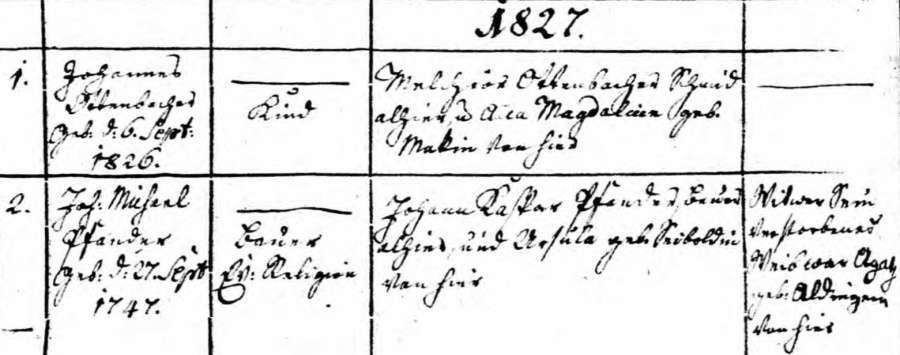 1827.
1.
Johannes
Ottenbacher
geb: d: 6. Sept:
1826.
Kind
Melchior Ottenbacher Schmid
alhier, u Anna Magdalena geb.
Makin von hier
2.
Joh: Michael
Pfander
geb: d: 27. Sept
1747.
Bauer
Ev: Religion
Johann Kaspar Pfander, Bauer
alhier, und Ursula geb: Seiboldin
von hier
Witwer Sein
verstorbenes
Weib war Agatha
geb: Aldingerin
von hier